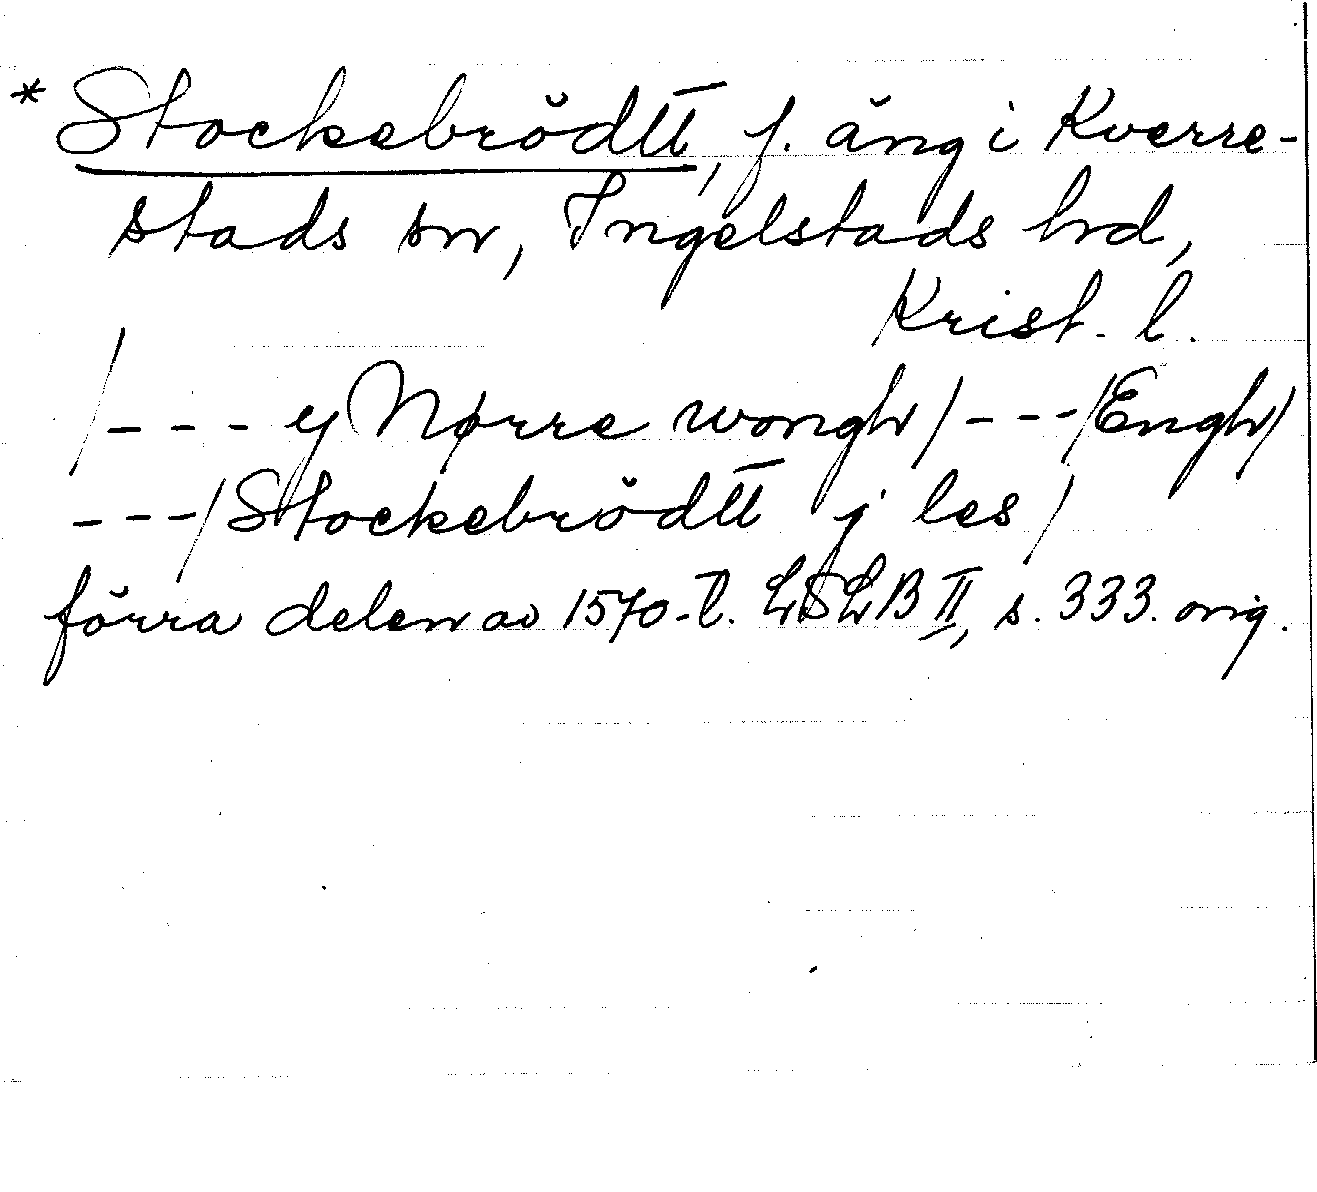 * Stockebrödtt, f. äng i Kverre-
stads sn, Ingelstads hrd,
Krist. l.
/--- ij Nørre wongh/---/Engh/
---/Stockebrödtt j les/
förra delen av 1570-t. LSLB II, s. 333. orig.